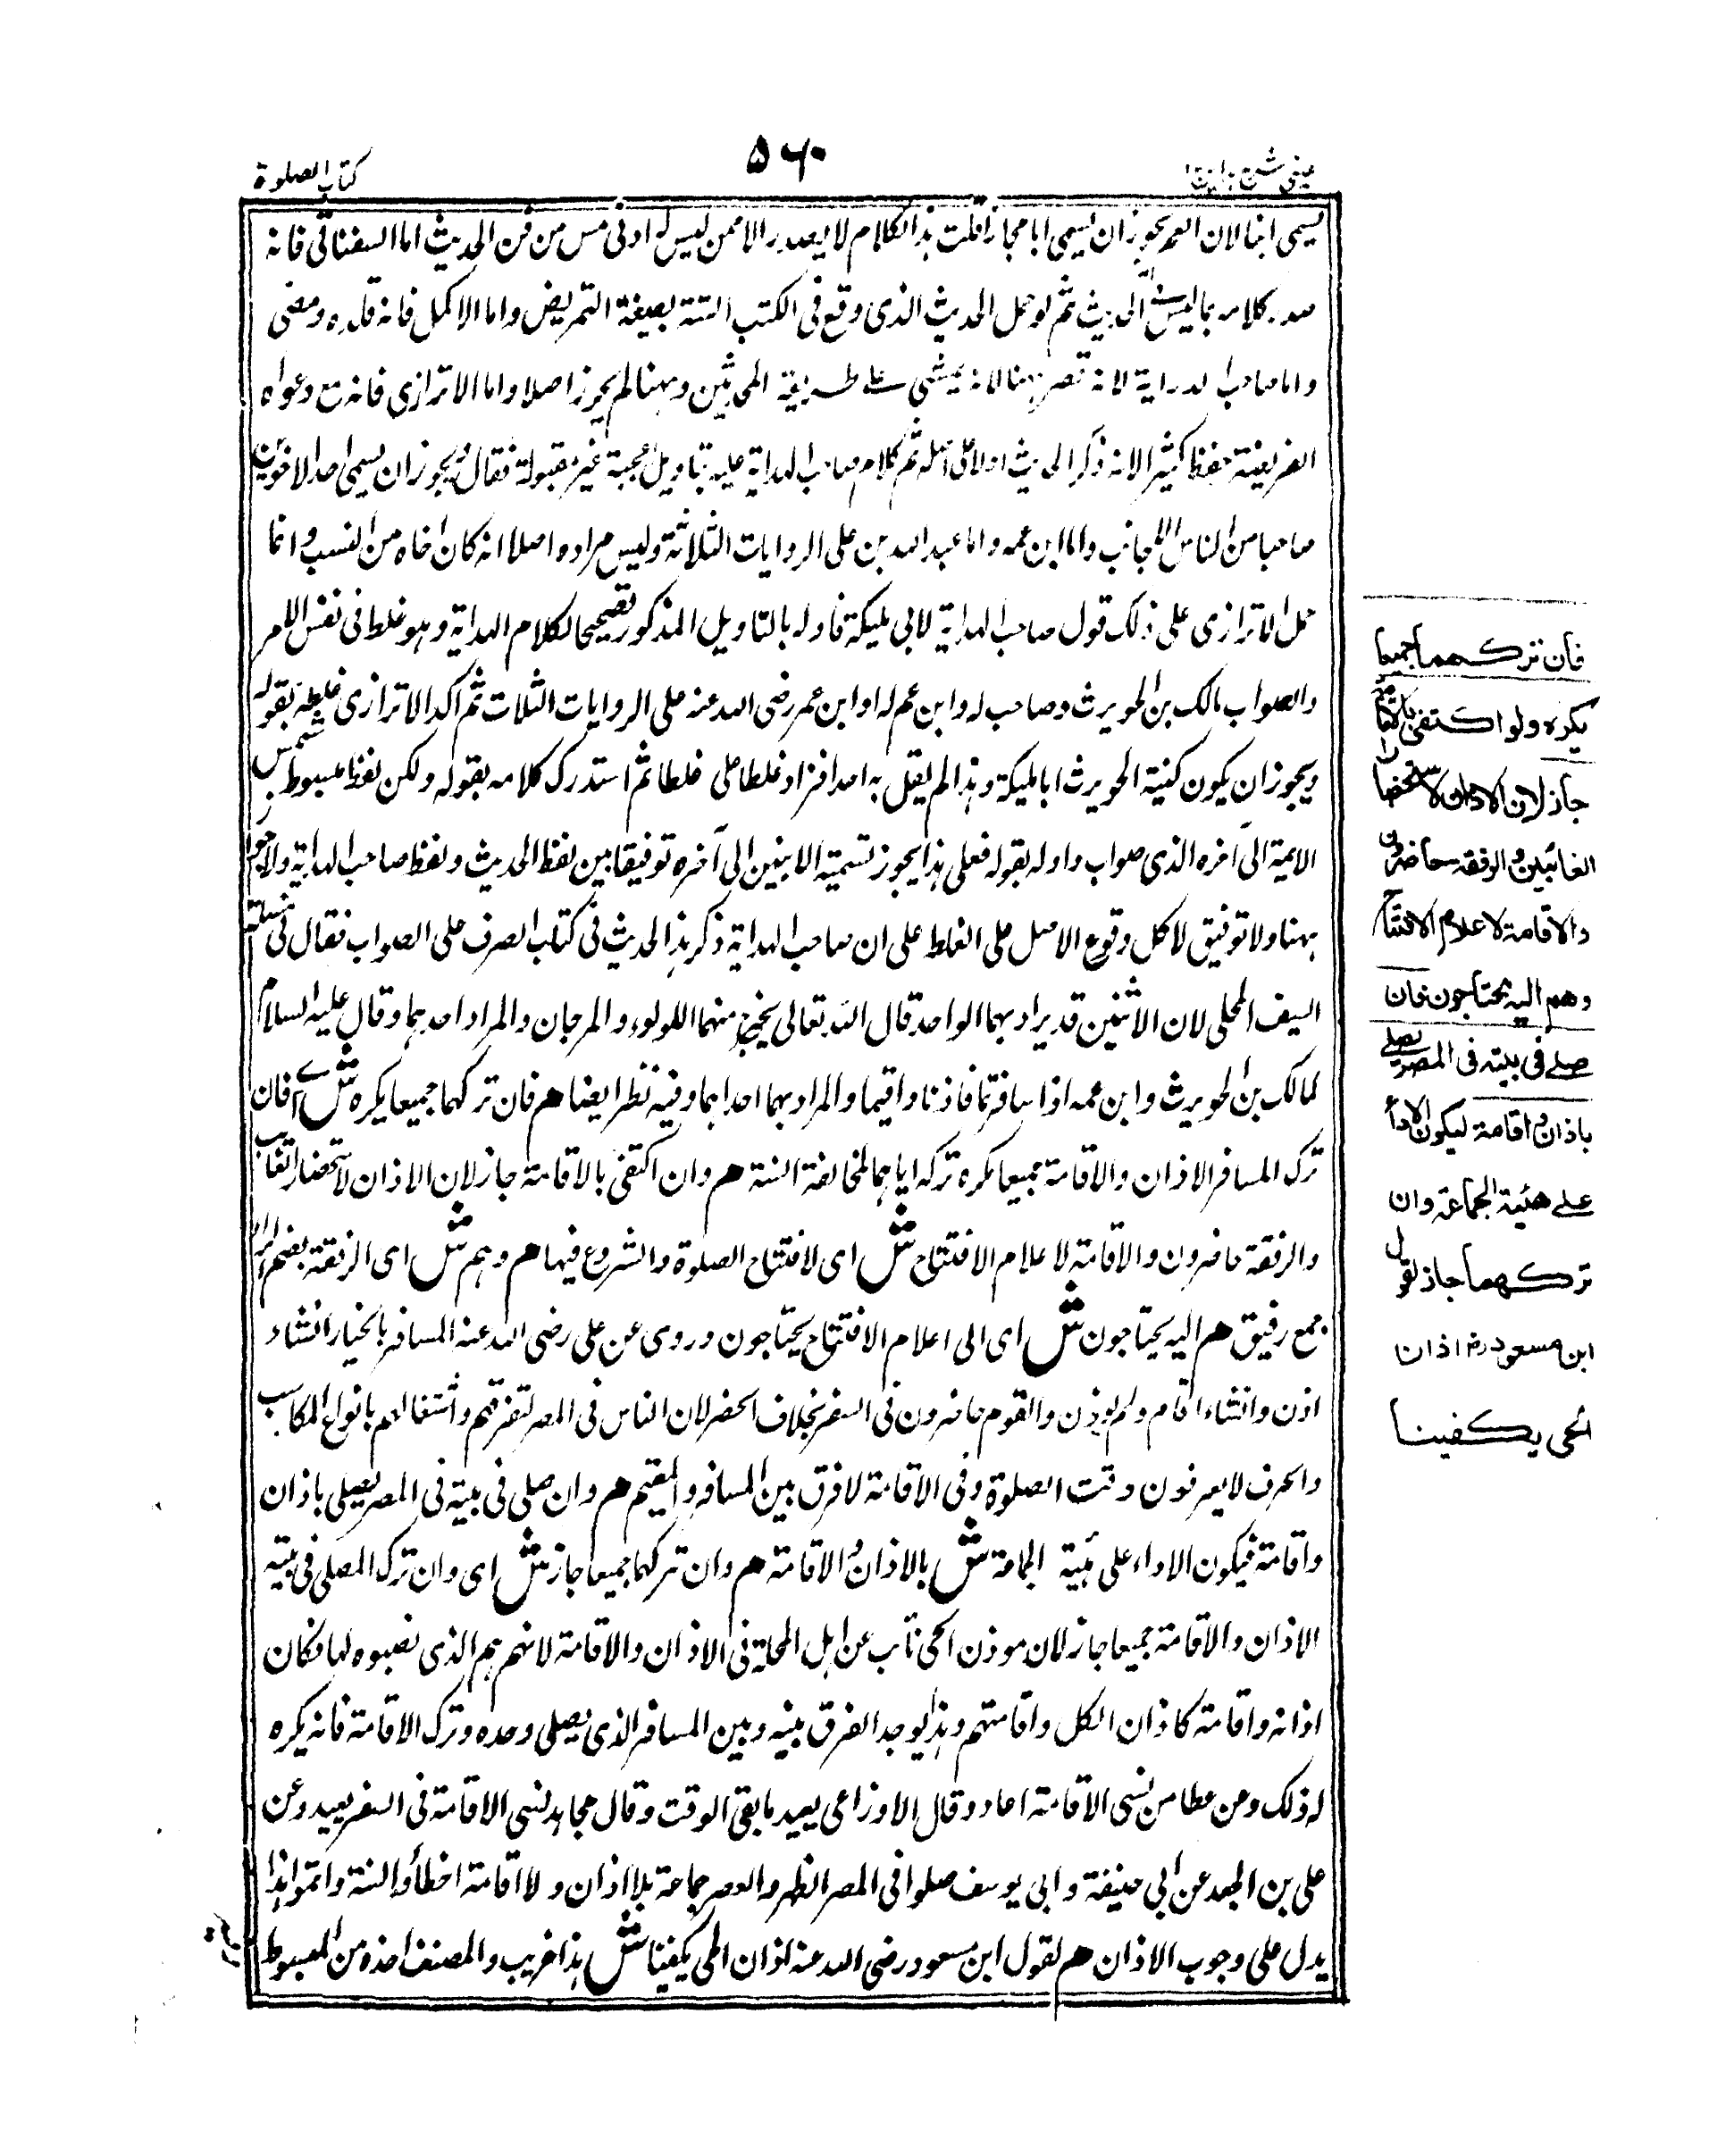 عینی شرح ہدایہ ج ا
۵۶۰
کتاب الصلوة
یسمی ابنا لان العم یجوز ان یسمی ابا مجازا قلت ہذا الکلام لا یصدر الا ممن لیس لہ ادنی مس من فن الحدیث اما السغناقی فانہ
صدر کلامہ بما لیس الحدیث ثم لو حمل الحدیث الذی وقع فی الکتب الستة بصیغة التمریض واما الاکمل فانہ قلدہ ومضی
واما صاحب الدرایة لانہ قصر ہنا لانہ یمشی علی طریقة المحدثین وہہنا لم یحرز اصلا واما الاترازی فانہ مع دعواہ
العریضة حفظ کثیر الا انہ ذکر الحدیث اولا علی اصلہ ثم کلام صاحب الہدایة علیہ بتاویل عجیبة غیر مقبولة فقال یجوز ان یسمی احد الاخوین
صاحبا من الناس الاجانب واما ابن عمہ واما عبد اللہ بن علی الروایات الثلاثة ولیس مرادہ اصلا انہ کان اخاہ من النسب وانما
حمل الاترازی علی ذلک قول صاحب الہدایة لابی ملیکة فاولہ بالتاویل المذکور تصحیحا لکلام الہدایة وہو غلط فی نفس الامر
والصواب مالک بن الحویرث وصاحب لہ وابن عم لہ او ابن عمر رضی اللہ عنہ علی الروایات الثلاث ثم اکد الاترازی غلطہ بقولہ
ویجوز ان یکون کنیة الحویرث ابا ملیکة وہذا لم یقل بہ احد فزاد غلطا علی غلطا ثم استدرک کلامہ بقولہ ولکن لفظ مبسوط شمس
الایمة الی آخرہ الذی صواب واولہ بقولہ فعلی ہذا یجوز تسمیة الابنین الی آخرہ توفیقا بین لفظ الحدیث ولفظ صاحب الہدایة ولاجواز
ہہنا ولا توفیق لا کل وقوع الاصل علی الغلط علی ان صاحب الہدایة ذکر ہذا الحدیث فی کتاب الصرف علی الصواب فقال فی مسئلة
السیف المحلی لان الاثنین قد یراد بہما الواحد قال اللہ تعالی یخرج منہما اللولوء والمرجان والمراد احدہما وقال علیہ السلام
لمالک بن الحویرث وابن عمہ اذا سافرتما فاذنا واقیما والمراد بہما احدہما وفیہ نظر ایضا ھم فان ترکہما جمیعا یکرہ ش ای فان
ترک المسافر الاذان والاقامة جمیعا یکرہ ترکہ ایاہما لمخالفة السنة ھم وان اکتفی بالاقامة جاز لان الاذان لاستحضار الغایب
والرفقة حاضرون والاقامة لاعلام الافتتاح ش ای لافتتاح الصلوة والشروع فیہا ھم وہم ش ای الرفقة بضم الراء
جمع رفیق ھم الیہ یحتاجون ش ای الی اعلام الافتتاح یحتاجون وروی عن علی رضی اللہ عنہ المسافر بالخیار ان شاء
اذن وان شاء اقام ولم یوذن والقوم حاضرون فی السفر بخلاف الحضر لان الناس فی المصر لتفرقہم واشتغالہم بانواع المکاسب
والحرف لا یعرفون وقت الصلوة وفی الاقامة لا فرق بین المسافر والمقیم ھم وان صلی فی بیتہ فی المصر یصلی باذان
واقامة فیکون الاداء علی ہیئة الجماعة ش بالاذان والاقامة ھم وان ترکہما جمیعا جاز ش ای وان ترک المصلی فی بیتہ
الاذان والاقامة جمیعا جاز لان موذن الحی نائب عن اہل المحلة فی الاذان والاقامة لانہم ہم الذی نصبوہ لہا فکان
اذانہ واقامة کاذان الکل واقامتہم وہذا یوجد الفرق بینہ وبین المسافر الذی یصلی وحدہ وترک الاقامة فانہ یکرہ
لہ ذلک وعن عطا من نسی الاقامة اعاد وقال الاوزاعی یعید ما بقی الوقت وقال مجاہد نسی الاقامة فی السفر یعید وعن
علی بن الجعد عن ابی حنیفة وابی یوسف صلوا فی المصر الظہر والعصر جماعة بلا اذان ولا اقامة اخطأوا السنة واثموا ہذا
یدل علی وجوب الاذان ھم لقول ابن مسعود رضی اللہ عنہ اذان الحی یکفینا ش ہذا غریب والمصنف اخذہ من المبسوط
فان ترکهما جمیعا
یکره ولو اکتفی بالاقامة
جاز لان الاذان لاستحضار
الغائبین والرفقة حاضرون
والاقامة لاعلام الافتتاح
وهم الیه یحتاجون فان
صلے فی بیته فی المصر یصلے
باذان واقامة لیکون الاداء
علے هئیة الجماعة وان
ترکهما جاز لقول
ابن مسعود رض اذان
الحی یکفینا